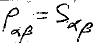 ραβ = Sαβ